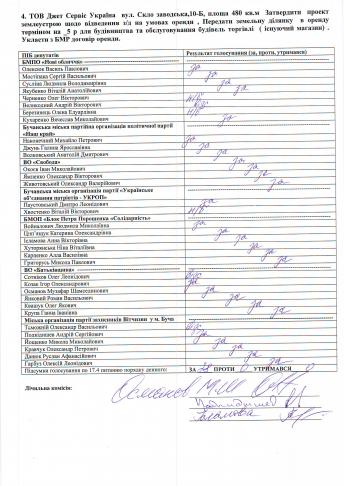 4. ТОВ Джет Сервіс Україна вул. Скло заводська,10-Б, площа 480 кв.м Затвердити проект
землеустрою щодо відведення з/д на умовах оренди , Передати земельну ділянку в оренду
терміном на _5 р для будівництва та обслуговування будівель торгівлі ( існуючий магазин) .
Укласти з БМР договір оренди.
ПІБ депутатів Результат голосування (за, проти, утримався)
БМПО «Нові обличчя»
Олексюк Василь Павлович за
Мостіпака Сергій Васильович за
Суслін Людмила Володимирівна за
Якубенко Віталій Анатолійович за
Черненко Олег Вікторович
Великодний Андрій Вікторович
Березинець Олена Едуардівна
Кухаренко Вячеслав Миколайович за
Бучанська міська партійна організація політичної партії
«Наш край»
Наконечний Михайло Петрович за
Джунь Галина Ярославівна за
Волковський Анатолій Дмитрович за
ВО «Свобода»
Окоєв Іван Миколайович за
Яценко Олександр Вікторович за
Животовський Олександр Валерійович за
Бучанська міська організація партії «Українське
об'єднання патріотів - УКРОП»
Паустовський Дмитро Леонідович за
Хвостенко Віталій Вікторович
БМОП «Блок Петра Порошенка «Солідарність»
Войцалович Людмила Миколаївна за
Цілі'ицук Катерина Олександрівна за
Ісламова Анна Вікторівна за
Хуторянська Ніна Віталіївна за
Карпенко Алла Василівна за
Григорусь Микола Павлович за
ВО «Батьківщина»
Сотніков Олег Леонідович
Козак Ігор Олександрович за
Османов Музафар Шамседінович за
Янковий Роман Васильович за
Ковшун Олег Якович за
Крупа Ганна Іванівна за
Міська організація партії захисників Вітчизни у м. Буча
Томожній Олександр Васильович
Подкідишев Андрій Сергійович за
Йощенко Микола Миколайович за
Кравчук Олександр Петрович за
Данюк Руслан Афанасійович за
Гарбуз Олексій Леонідович за
Підсумки голосування по 17.4 питанню порядку денного: ЗА ПРОТИ 0 УТРИМАВСЯ
Лічильна комісія: Османов М.Ш
Подкидишев
Ісламова